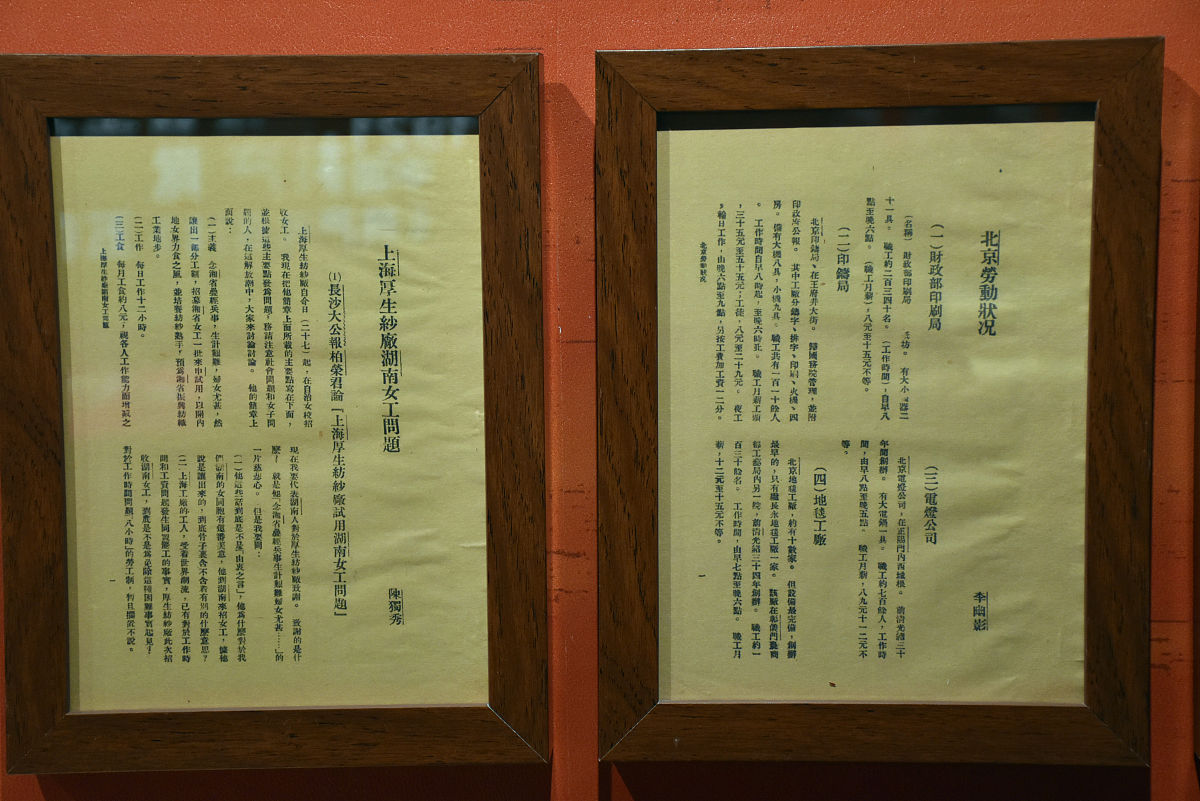 上海厚生紗廠湖南女工問題
陳獨秀
(1)長沙大公報柏榮君論『上海厚生紡紗廠試用湖南女工問題』
上海厚生紡紗廠自今日(二十七)起,在自治女校招
收女工。 我現在把他簡章上面所載的主要點寫在下面,
並根據這些主要點發爲問題,務請注意社會問題和女子問
題的人,在這解放潮中,大家來討論討論。 他的簡章上
面說:
(一)主義 念湘省疊經兵事,生計艱難,婦女尤甚,然
讓出一部分工額,招募湘省女工一批來申試用,以開內
地女界力食之風,並培養紡紗熟手,預爲湘省振興紡織
工業地步。
(二)工作 每日工作十二小時。
(三)工食 每月工食約八元,視各人工作能力而增減之
現在我要代表湖南人對於厚生紡紗廠致謝。 致謝的是什
麼? 就是他『念湘省疊經兵事生計艱難婦女尤甚……』的
一片慈心。 但是我要問:
(一)他這些話到底是不是『由衷之言』,他爲什麼對於我
們湖南的女同胞有這番美意,他到湖南來招女工,據他
說是讓出來的,到底骨子裏含不含若有別的什麼意思?
(二)上海工廠的工人,受着世界潮流,已有對於工作時
間和工資問題發生同盟罷工的事實,厚生紡紗廠此次招
收湖南女工,到底是不是爲免除這種困難事實起見?
對於工作時間問題『八小時』的勞工制,暫且擱置不說。
上海厚生紗廠湖南女工問題
一
北京勞動狀况
李幽影
(一)財政部印刷局
(名稱)財政部印刷局
有大小機器二
十一具。 職工約二百三四十名。 (工作時間),自早八
點至晚六點。 (職工月薪),八元至十五元不等。
(二)印鑄局
北京印鑄局、在王府井大街。 歸國務院管理,並附
印政府公報。 其中工廠分鑄字、排字、印刷、火機、四
房。 備有大機八具,小機九具。 職工共有一百一十餘人
。 工作時間自早八時起,至晚六時止。 職工月薪工頭
,三十五元至五十五元;工徒,八元至二十九元。 夜工
,輪日工作,由晚六點至九點,另按工費加工費一二分。
(三)電燈公司
北京電燈公司,在正陽門內西城根。 前淸光緖三十
年間創辦。 有大電鍋一具。 職工約七百餘人,工作時
間,由早八點至晚五點。 職工月薪,八九元十一二元不
等。
(四)地毯工廠
北京地毯工廠,約有十數家。 但設備最完備,創辦
最早的,只有繼長永地毯工廠一家。 該廠在彰儀門農商
部工藝局內另一院,前淸光緖三十四年創辦。 職工約一
百三十餘名。 工作時間,由早七點至晚六點。 職工月
薪,十二元至十五元不等。
北京勞動狀况
一